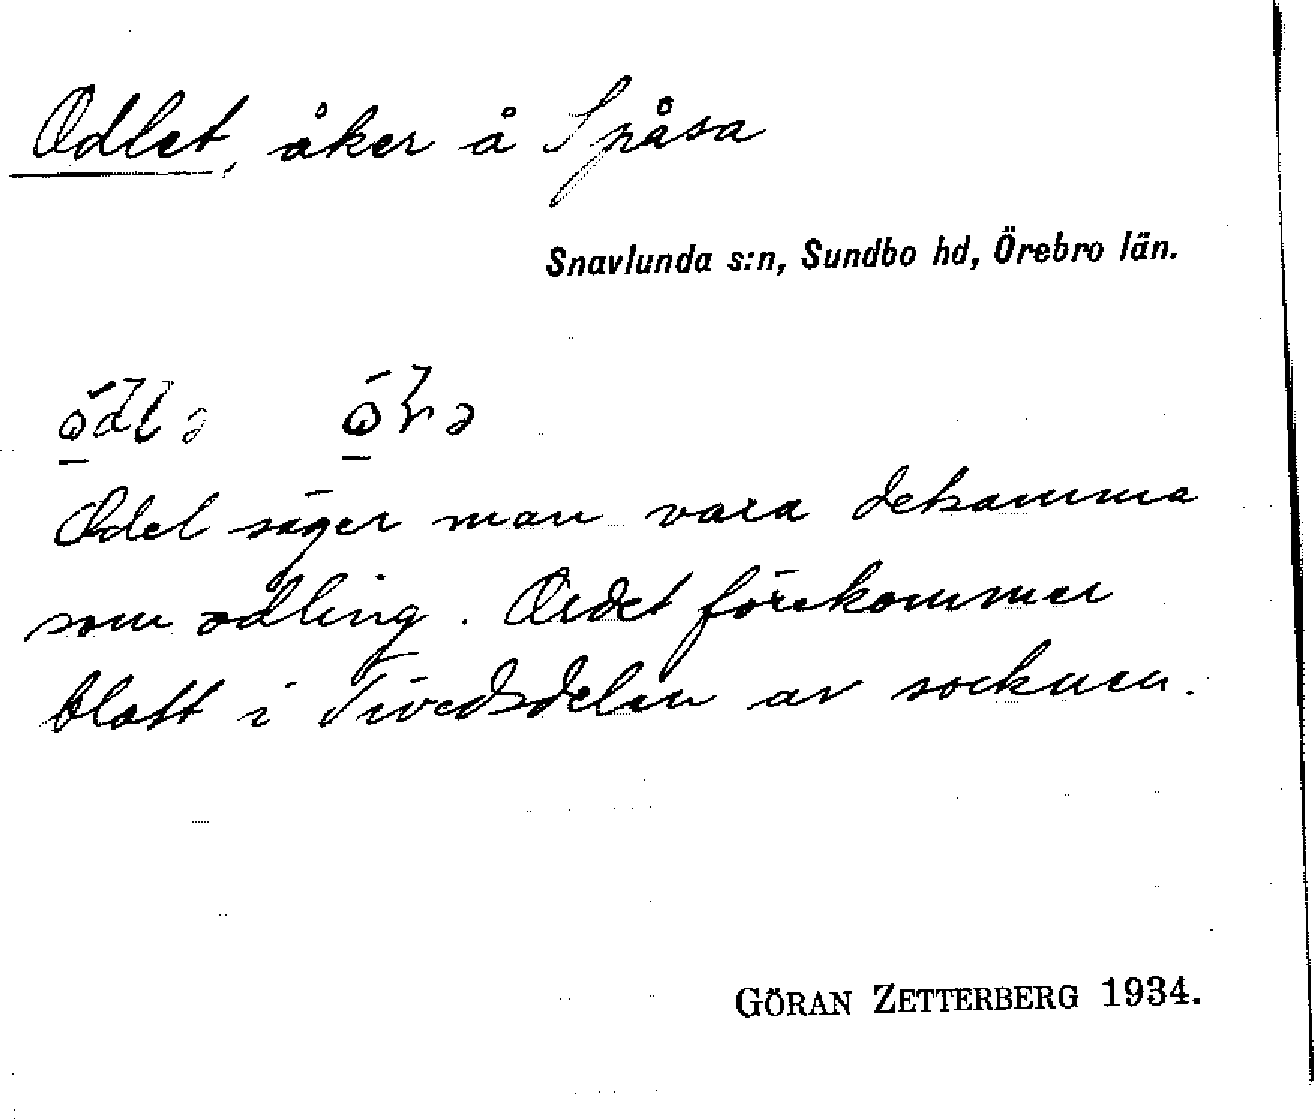 Odlet, åker å Spåsa
Snavlunda s:n, Sundbo hd, Örebro län.
Odel säger man vara detsamma
som odling. Ordet förekommer
blott i Tivedsdelen av socknen.
GÖRAN ZETTERBERG 1934.